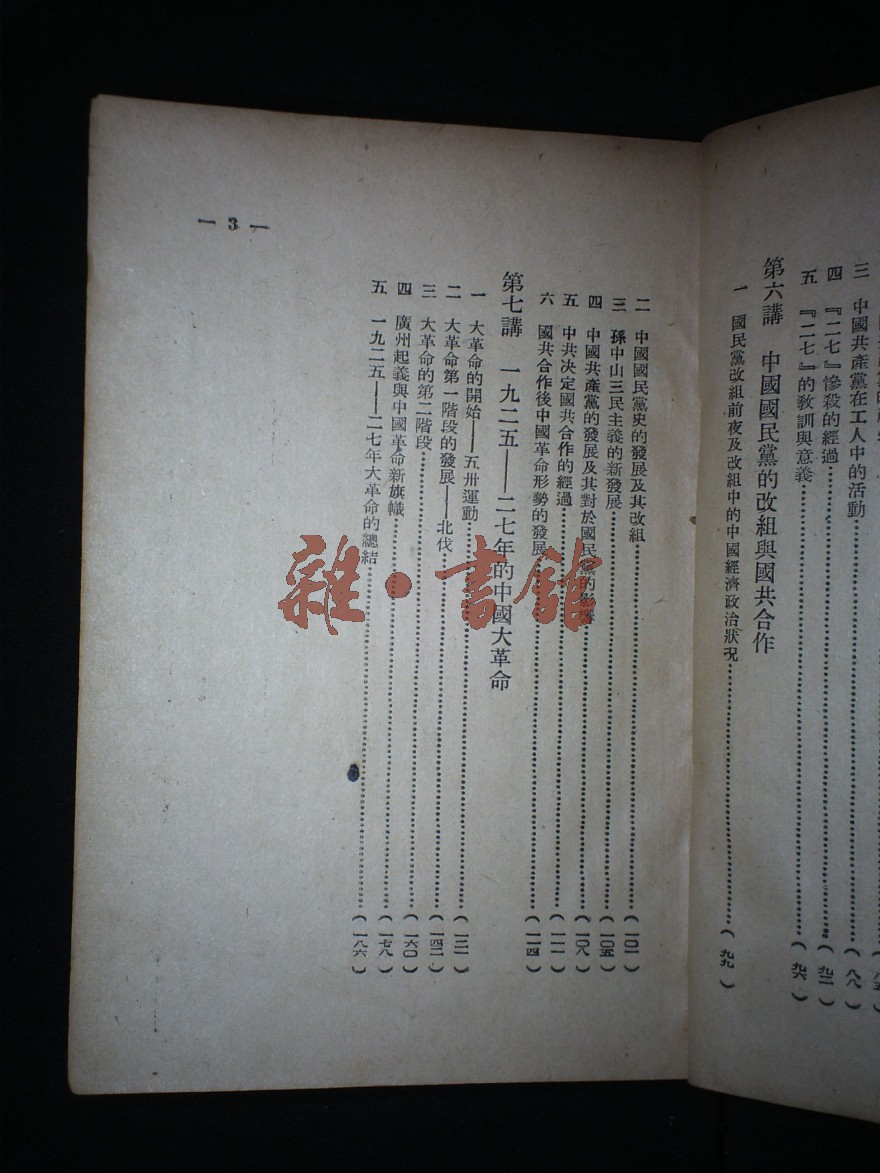 三　中國共產黨在工人中的活動……（八八）
四　『二七』慘殺的經過……（九二）
五　『二七』的教訓與意義……（九六）
第六講　中國國民黨的改組與國共合作
一　國民黨改組前夜及改組中的中國經濟政治狀况……（九九）
二　中國國民黨史的發展及其改組……（一〇一）
三　孫中山三民主義的新發展……（一〇五）
四　中國共產黨的發展及其對於國民黨的影響……（一〇八）
五　中共決定國共合作的經過……（一一一）
六　國共合作後中國革命形勢的發展……（一一四）
第七講　一九二五——二七年的中國大革命
一　大革命的開始——五卅運動……（一三一）
二　大革命第一階段的發展——北伐……（一四二）
三　大革命的第二階段……（一六〇）
四　廣州起義與中國革命新旗幟……（一七八）
五　一九二五——二七年大革命的總結……（一八六）
— 3 —
雜·書館